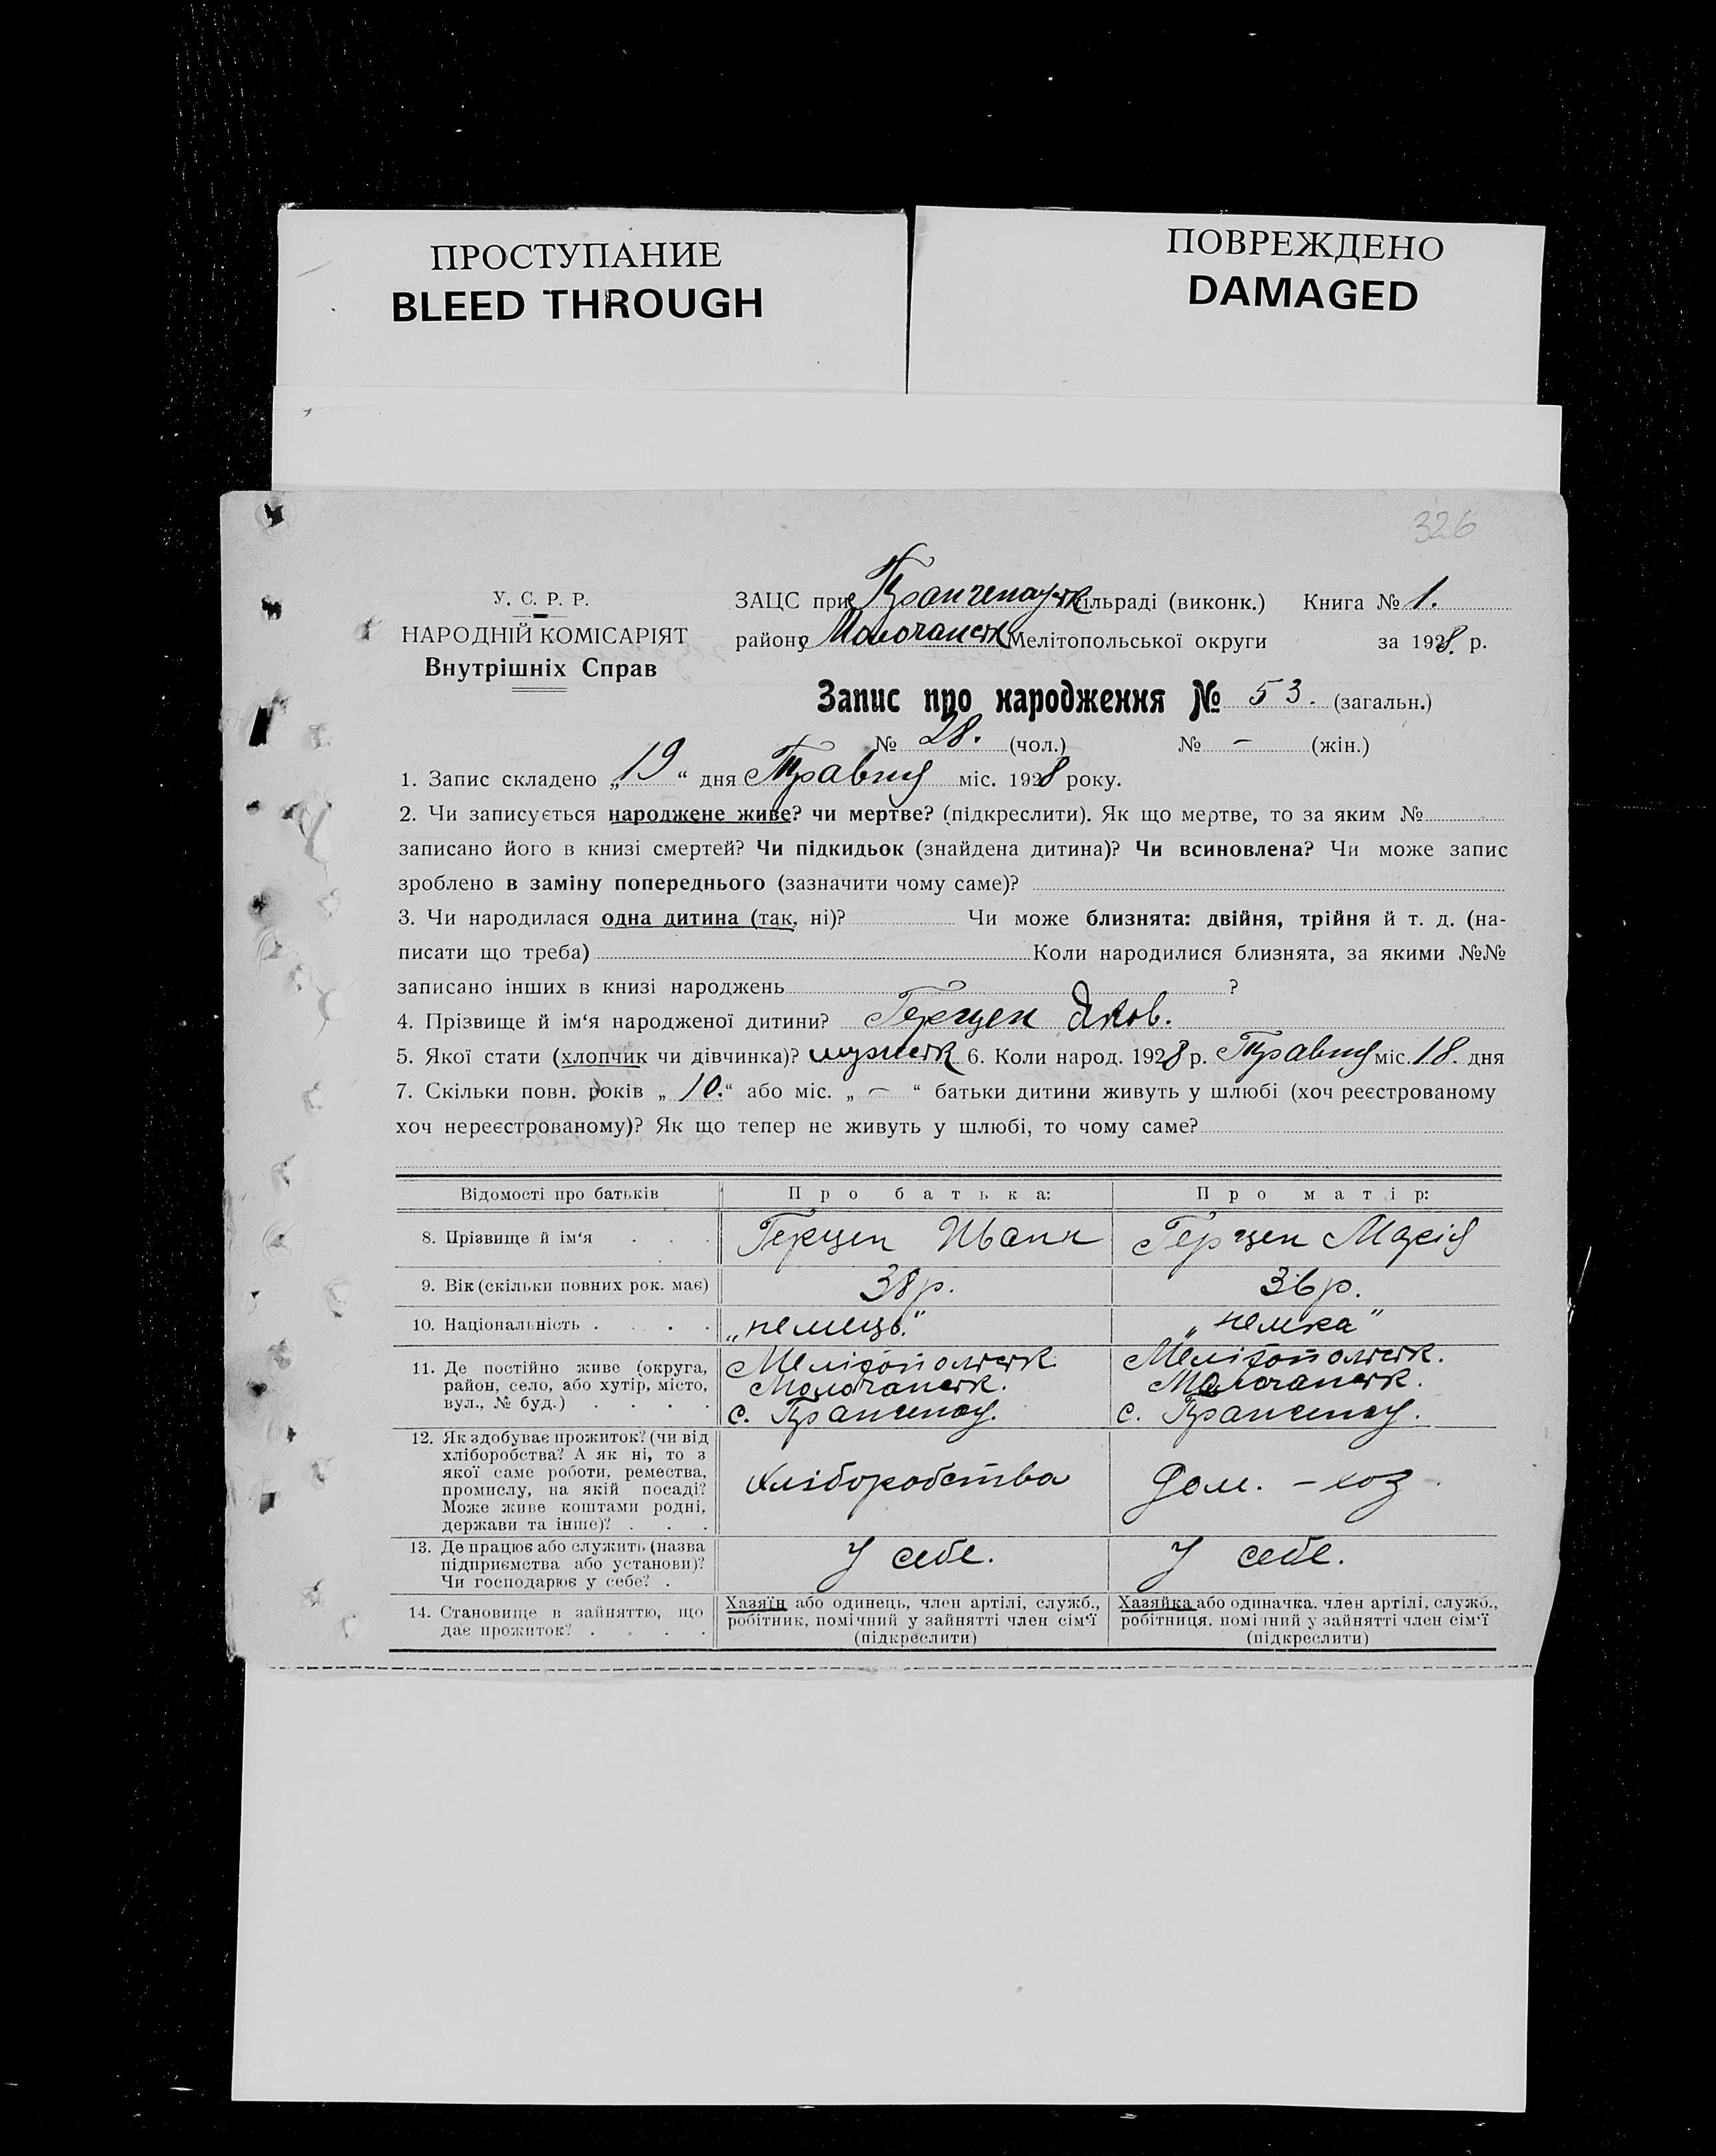 ПРОСТУПАНИЕ
BLEED THROUGH
ПОВРЕЖДЕНО
DAMAGED
326
У. С. Р. Р.
НАРОДНІЙ КОМІСАРІЯТ
Внутрішніх Справ
ЗАЦС при сільраді (виконк.) Книга № 1.
району Молочанськ Мелітопольської округи за 1928. р.
Запис про народження № 53. (загальн.)
№ 28. (чол.) № – (жін.)
1. Запис складено „19“ дня Травня міс. 1928 року.
2. Чи записується народжене живе? чи мертве? (підкреслити). Як що мертве, то за яким №
записано його в книзі смертей? Чи підкидьок (знайдена дитина)? Чи всиновлена? Чи може запис
зроблено в заміну попереднього (зазначити чому саме)?
3. Чи народилася одна дитина (так, ні)? Чи може близнята: двійня, трійня й т. д. (на-
писати що треба) Коли народилися близнята, за якими №№
записано інших в книзі народжень ?
4. Прізвище й ім‘я народженої дитини? Герцен Яков.
5. Якої стати (хлопчик чи дівчинка)? мужськ 6. Коли народ. 1928 р. Травня міс. 18. дня
7. Скільки повн. років „10.“ або міс. „ – “ батьки дитини живуть у шлюбі (хоч реєстрованому
хоч нереєстрованому)? Як що тепер не живуть у шлюбі, то чому саме?
Відомості про батьків Про батька: Про матір:
8. Прізвище й ім‘я . . . Герцен Иван Герцен Марія
9. Вік (скільки повних рок. має) 38 р. 36 р.
10. Національність . . . . „немець.“ „немка“
11. Де постійно живе (округа, район, село, або хутір, місто, вул., № буд.) . . . .
Мелітопольськ Молочанськ. с.
Мелітопольськ. Молочанськ. с.
12. Як здобуває прожиток? (чи від хліборобства? А як ні, то з якої саме роботи, ремества, промислу, на якій посаді? Може живе коштами родні, держави та інше)? . . .
хліборобства
Дом. – хоз.
13. Де працює або служить (назва підприємства або установи)? Чи господарює у себе? .
У себе.
У себе.
14. Становище в зайняттю, що дає прожиток? . . . .
Хазяїн або одинець, член артілі, служб., робітник, помічний у зайнятті член сім‘ї (підкреслити)
Хазяйка або одиначка. член артілі, служб., робітниця. помічний у зайнятті член сім‘ї (підкреслити)